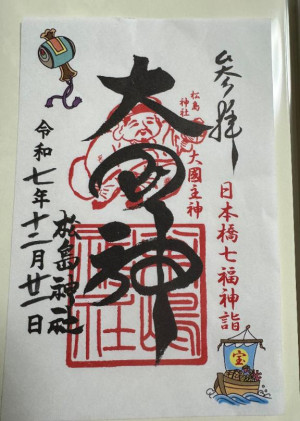 参拝
日本橋七福神詣
宝
松島神社
大國主神
大国神
松島神社
令和七年十二月廿一日
松島神社